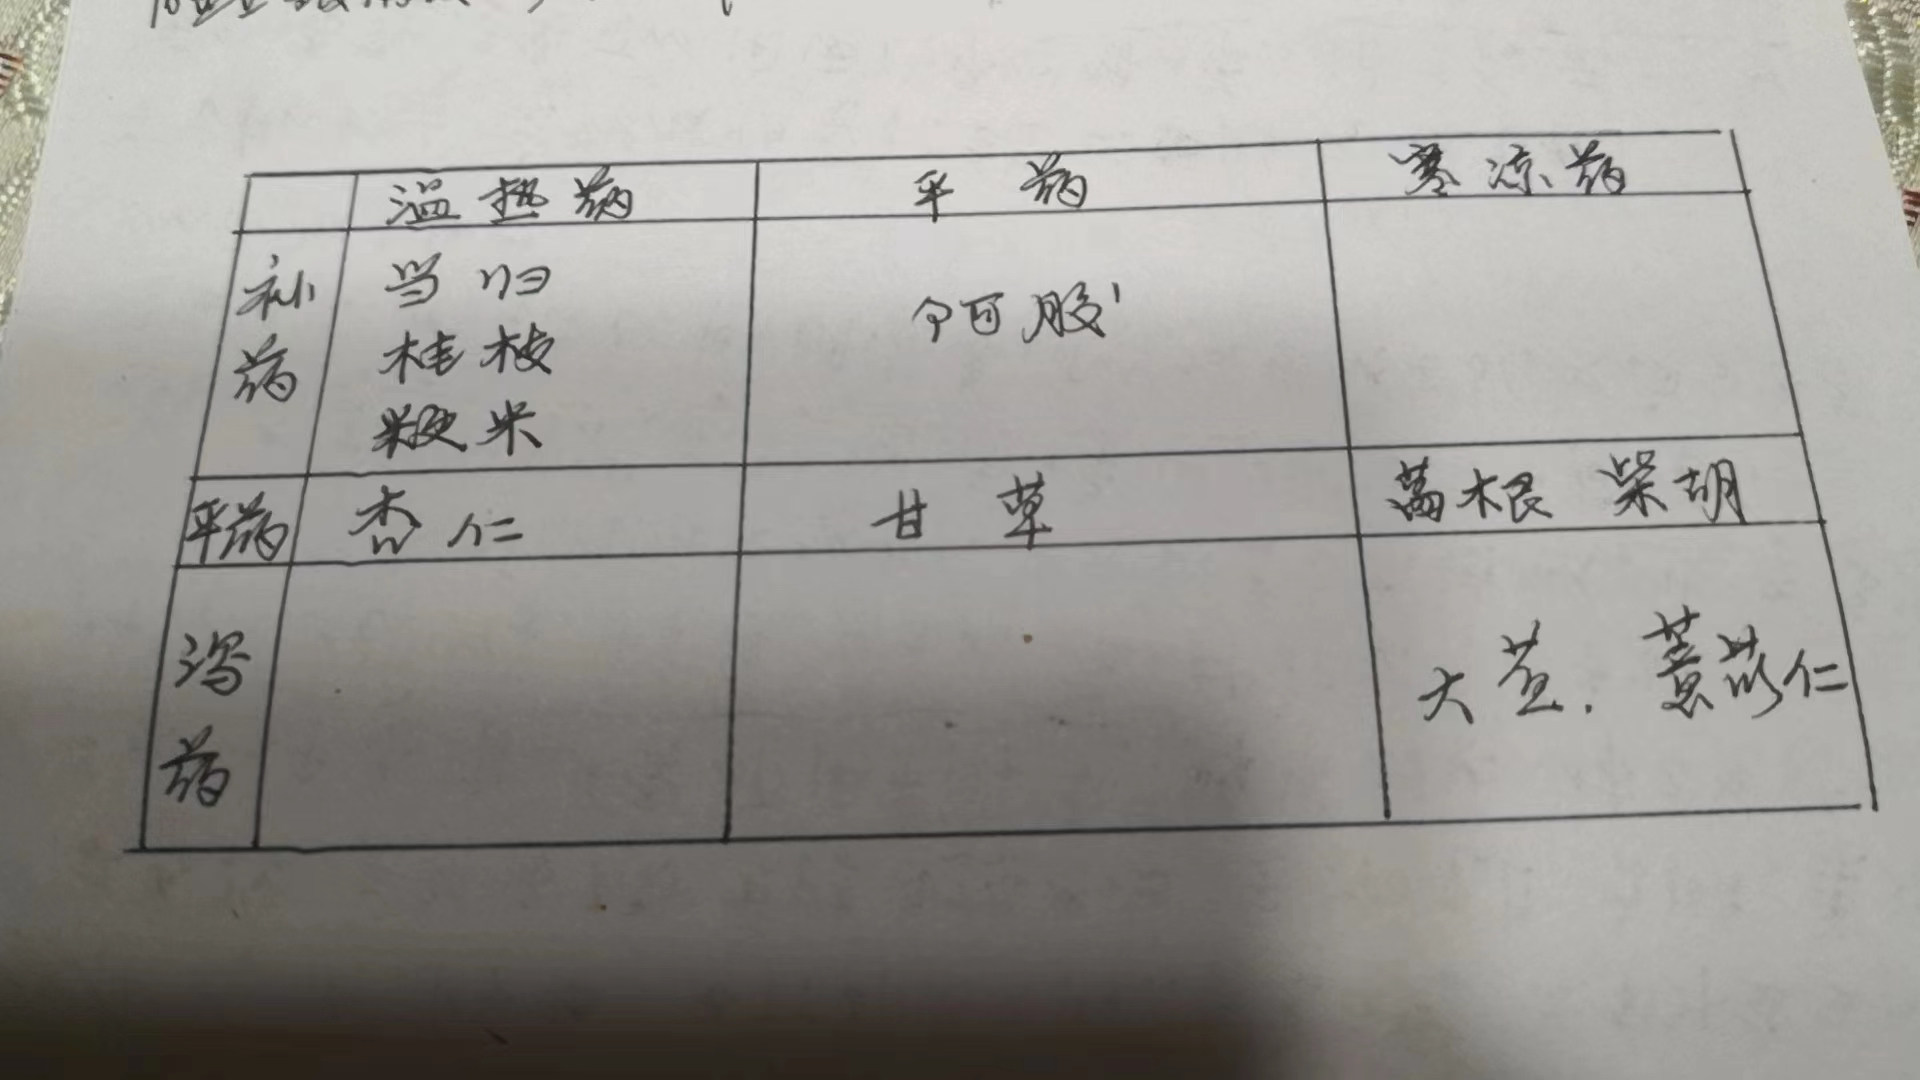 温热药 平药 寒凉药
补药 当归 阿胶
桂枝
粳米
平药 杏仁 甘草 葛根 柴胡
泻药 大黄. 薏苡仁